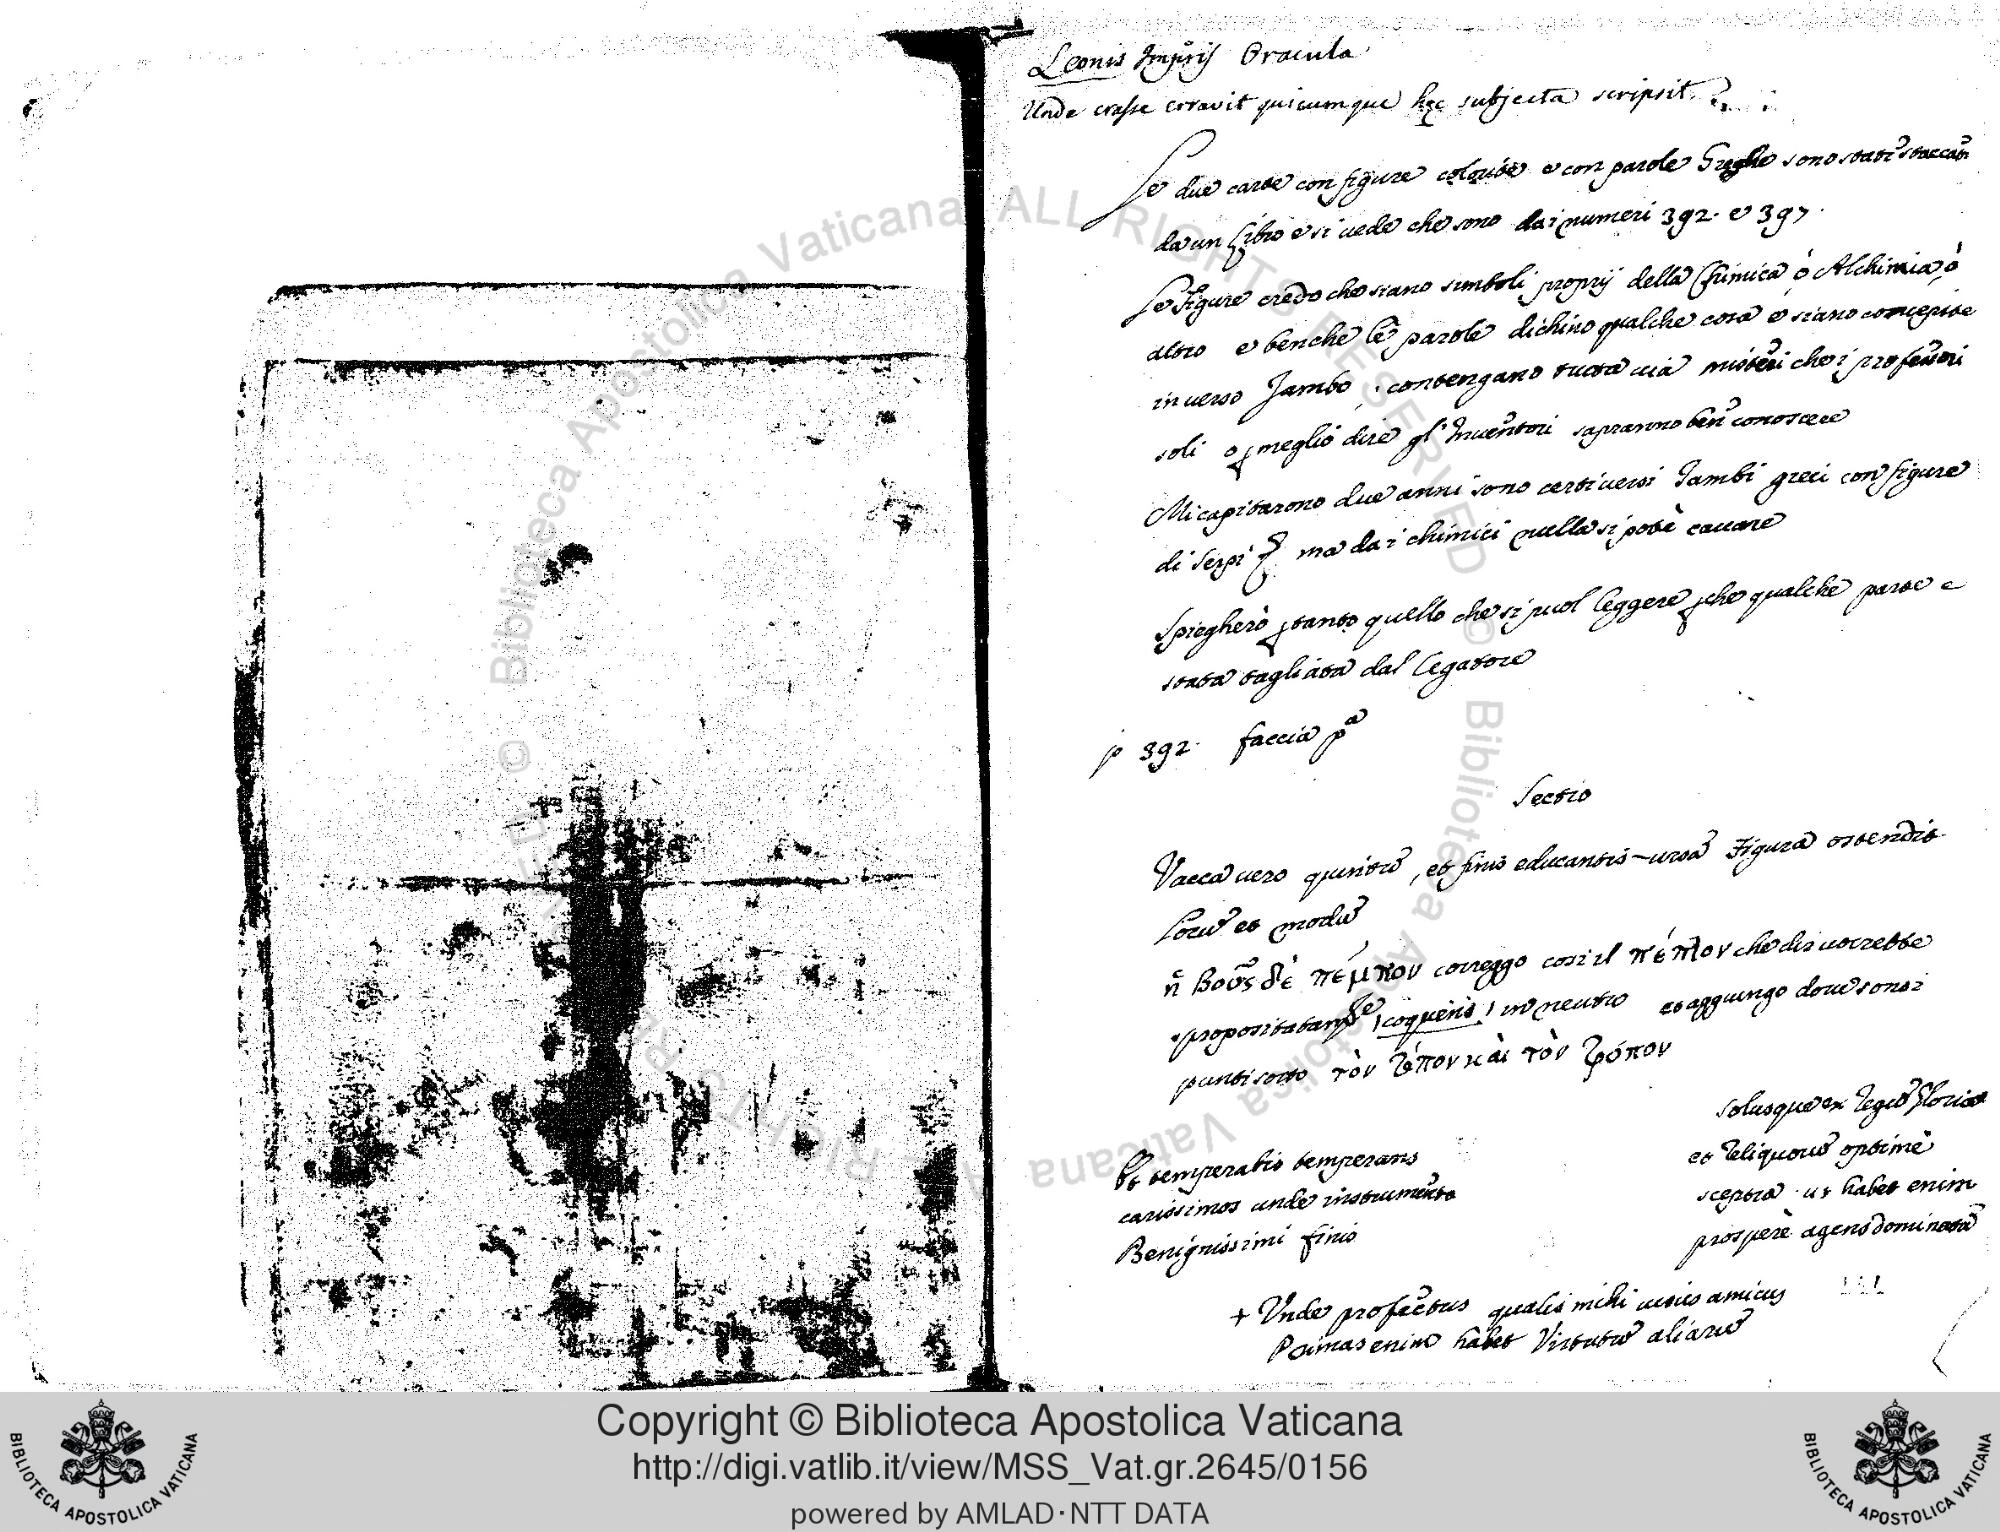 Leonis Imp̃ris Oracula
Unde crasse erravit quicumque hęc subjecta scripsit.
Le due carte con figure colorite e con parole Greche sono state staccate
da un libro e si vede che sono dai numeri 392. e 397.
Le Figure credo che siano simboli proprij della Chimica ò Alchimia, ò
altro e benche le parole dichino qualche cosa e siano concepite
in verso Jambo, contengano tutta via misteri che i professori
soli o p meglio dire gl'Inventori sapranno ben conoscere
Mi capitarono due anni sono certi versi Jambi greci con figure
di serpi ma da i chimici nulla si potè cavare
Spiegherò ptanto quello che si puol leggere pche qualche parte e
stata tagliata dal legatore
p 392. faccia pᵃ
Sectio
Vacca vero quintũ, et finis educantis ursa Figura ostendit
locũ et modũ
ἡ βοῦς δὲ πέμπον correggo così il πέπλον che dir vorrebbe
coquens in neutro et aggiungo dove sono i
punti sotto τὸν τόπον καὶ τὸν τρόπον
solusque ex regũ gloria
Et temperatio temperans et reliquorũ optimè
carissimos unde instrumento sceptra ut habet enim
Benignissimi finis prosperè agens dominatũ
+ Unde profectus qualis mihi visus amicus
Primas enim habet Virtutũ aliarũ
© Biblioteca Apostolica Vaticana ALL RIGHTS RESERVED
Copyright © Biblioteca Apostolica Vaticana
http://digi.vatlib.it/view/MSS_Vat.gr.2645/0156
powered by AMLAD·NTT DATA
BIBLIOTECA APOSTOLICA VATICANA
BIBLIOTECA APOSTOLICA VATICANA